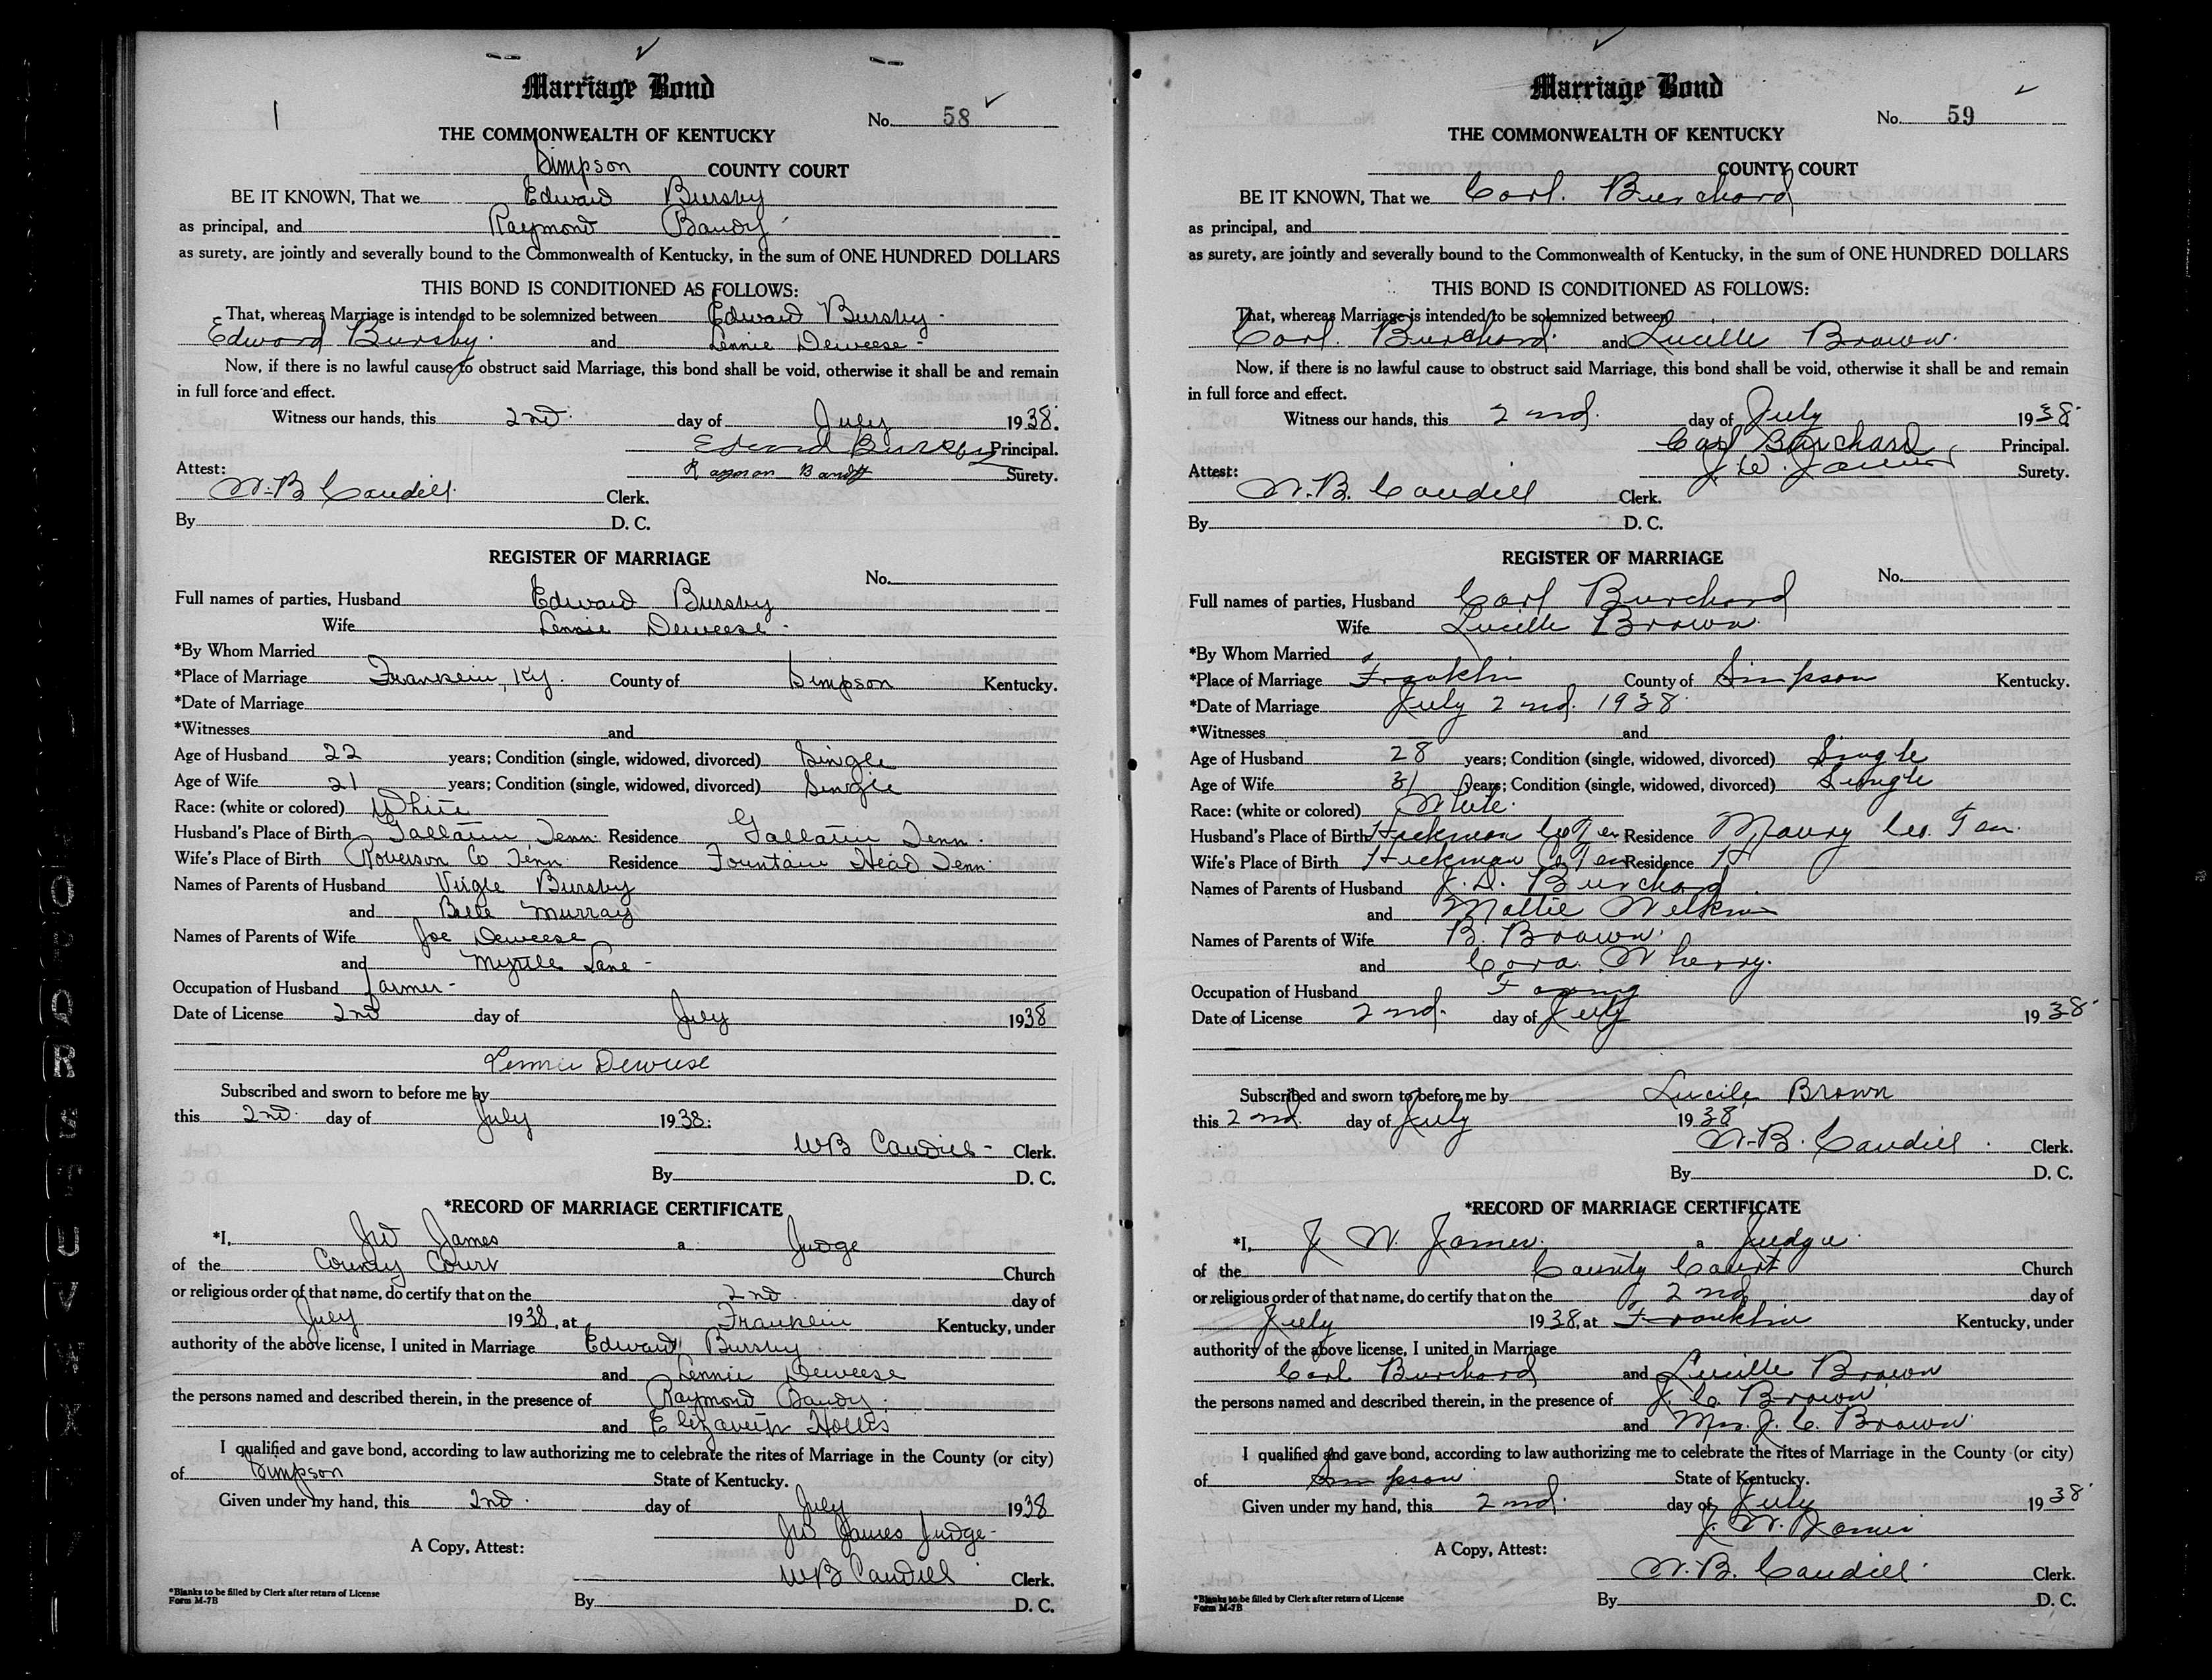 Marriage Bond
1
No. 58
THE COMMONWEALTH OF KENTUCKY
Simpson COUNTY COURT
BE IT KNOWN, That we Edward Bursby
as principal, and Raymond Bandy
as surety, are jointly and severally bound to the Commonwealth of Kentucky, in the sum of ONE HUNDRED DOLLARS
THIS BOND IS CONDITIONED AS FOLLOWS:
That, whereas Marriage is intended to be solemnized between Edward Bursby
Edward Bursby and Lennie Deweese
Now, if there is no lawful cause to obstruct said Marriage, this bond shall be void, otherwise it shall be and remain
in full force and effect.
Witness our hands, this 2nd day of July 1938.
Edward Bursby Principal.
Attest: Raymon Bandy Surety.
W.B Caudill Clerk.
By D. C.
REGISTER OF MARRIAGE
No.
Full names of parties, Husband Edward Bursby
Wife Lennie Deweese
*By Whom Married
*Place of Marriage Franklin, Ky. County of Simpson Kentucky.
*Date of Marriage
*Witnesses and
Age of Husband 22 years; Condition (single, widowed, divorced) Single
Age of Wife 21 years; Condition (single, widowed, divorced) Single
Race: (white or colored) White
Husband's Place of Birth Gallatin Tenn. Residence Gallatin Tenn.
Wife's Place of Birth Roberson Co Tenn. Residence Fountain Head Tenn.
Names of Parents of Husband Virgle Bursby
and Belle Murray
Names of Parents of Wife Joe Deweese
and Myrtle Lane
Occupation of Husband farmer
Date of License 2nd day of July 1938
Lennie Deweese
Subscribed and sworn to before me by
this 2nd. day of July 1938.
WB Caudill Clerk.
By D. C.
*RECORD OF MARRIAGE CERTIFICATE
*I, JW James a Judge
of the County Court Church
or religious order of that name, do certify that on the 2nd day of
July 1938, at Franklin Kentucky, under
authority of the above license, I united in Marriage Edward Bursby
and Lennie Deweese
the persons named and described therein, in the presence of Raymond Bandy
and Elizabeth Hollis
I qualified and gave bond, according to law authorizing me to celebrate the rites of Marriage in the County (or city)
of Simpson State of Kentucky.
Given under my hand, this 2nd. day of July 1938
JW James Judge
A Copy, Attest:
WB Caudill Clerk.
*Blanks to be filled by Clerk after return of License
Form M-7B
By D. C.
Marriage Bond
No. 59
THE COMMONWEALTH OF KENTUCKY
COUNTY COURT
BE IT KNOWN, That we Carl. Burchard
as principal, and
as surety, are jointly and severally bound to the Commonwealth of Kentucky, in the sum of ONE HUNDRED DOLLARS
THIS BOND IS CONDITIONED AS FOLLOWS:
That, whereas Marriage is intended to be solemnized between
Carl. Burchard. and Lucille Brown.
Now, if there is no lawful cause to obstruct said Marriage, this bond shall be void, otherwise it shall be and remain
in full force and effect.
Witness our hands, this 2nd. day of July 1938.
Carl Burchard Principal.
Attest: J. W. James Surety.
W.B. Caudill Clerk.
By D. C.
REGISTER OF MARRIAGE
No.
Full names of parties, Husband Carl Burchard
Wife Lucille Brown
*By Whom Married
*Place of Marriage Franklin County of Simpson Kentucky.
*Date of Marriage July 2nd. 1938.
*Witnesses and
Age of Husband 28 years; Condition (single, widowed, divorced) Single
Age of Wife 31 years; Condition (single, widowed, divorced) Single
Race: (white or colored) White.
Husband's Place of Birth Hickman Co Ten Residence Maury Co. Ten.
Wife's Place of Birth Hickman Co Ten Residence
Names of Parents of Husband J. D. Burchard
and Mattie
Names of Parents of Wife B. Brown.
and Cora. Wherry.
Occupation of Husband
Date of License 2nd. day of July 1938
Subscribed and sworn to before me by Lucile Brown
this 2nd. day of July 1938
W.B. Caudill Clerk.
By D. C.
*RECORD OF MARRIAGE CERTIFICATE
*I, J W. James. a Judge
of the County Court Church
or religious order of that name, do certify that on the 2nd day of
July 1938, at Franklin Kentucky, under
authority of the above license, I united in Marriage
Carl Burchard and Lucille Brown
the persons named and described therein, in the presence of J. C. Brown
and Mrs. J. C. Brown
I qualified and gave bond, according to law authorizing me to celebrate the rites of Marriage in the County (or city)
of Simpson State of Kentucky.
Given under my hand, this 2nd. day of July 1938
J. W. James
A Copy, Attest:
W.B. Caudill Clerk.
*Blanks to be filled by Clerk after return of License
Form M-7B
By D. C.